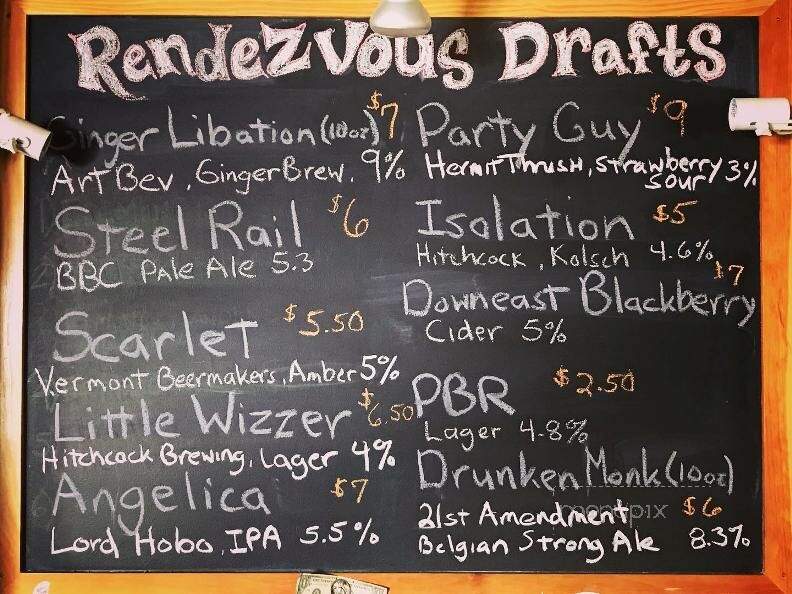 Rendezvous Drafts
Ginger Libation (10oz) $7
Art Bev, Ginger Brew. 9%
Steel Rail $6
BBC Pale Ale 5.3
Scarlet $5.50
Vermont Beermakers, Amber 5%
Little Wizzer $6.50
Hitchcock Brewing, Lager 4%
Angelica $7
Lord Hobo, IPA 5.5%
Party Guy $9
Hermit Thrush, Strawberry
Sour 3%
Isolation $5
Hitchcock, Kolsch 4.6%
$7
Downeast Blackberry
Cider 5%
PBR $2.50
Lager 4.8%
Drunken Monk (10oz)
21st Amendment $6
Belgian Strong Ale 8.3%